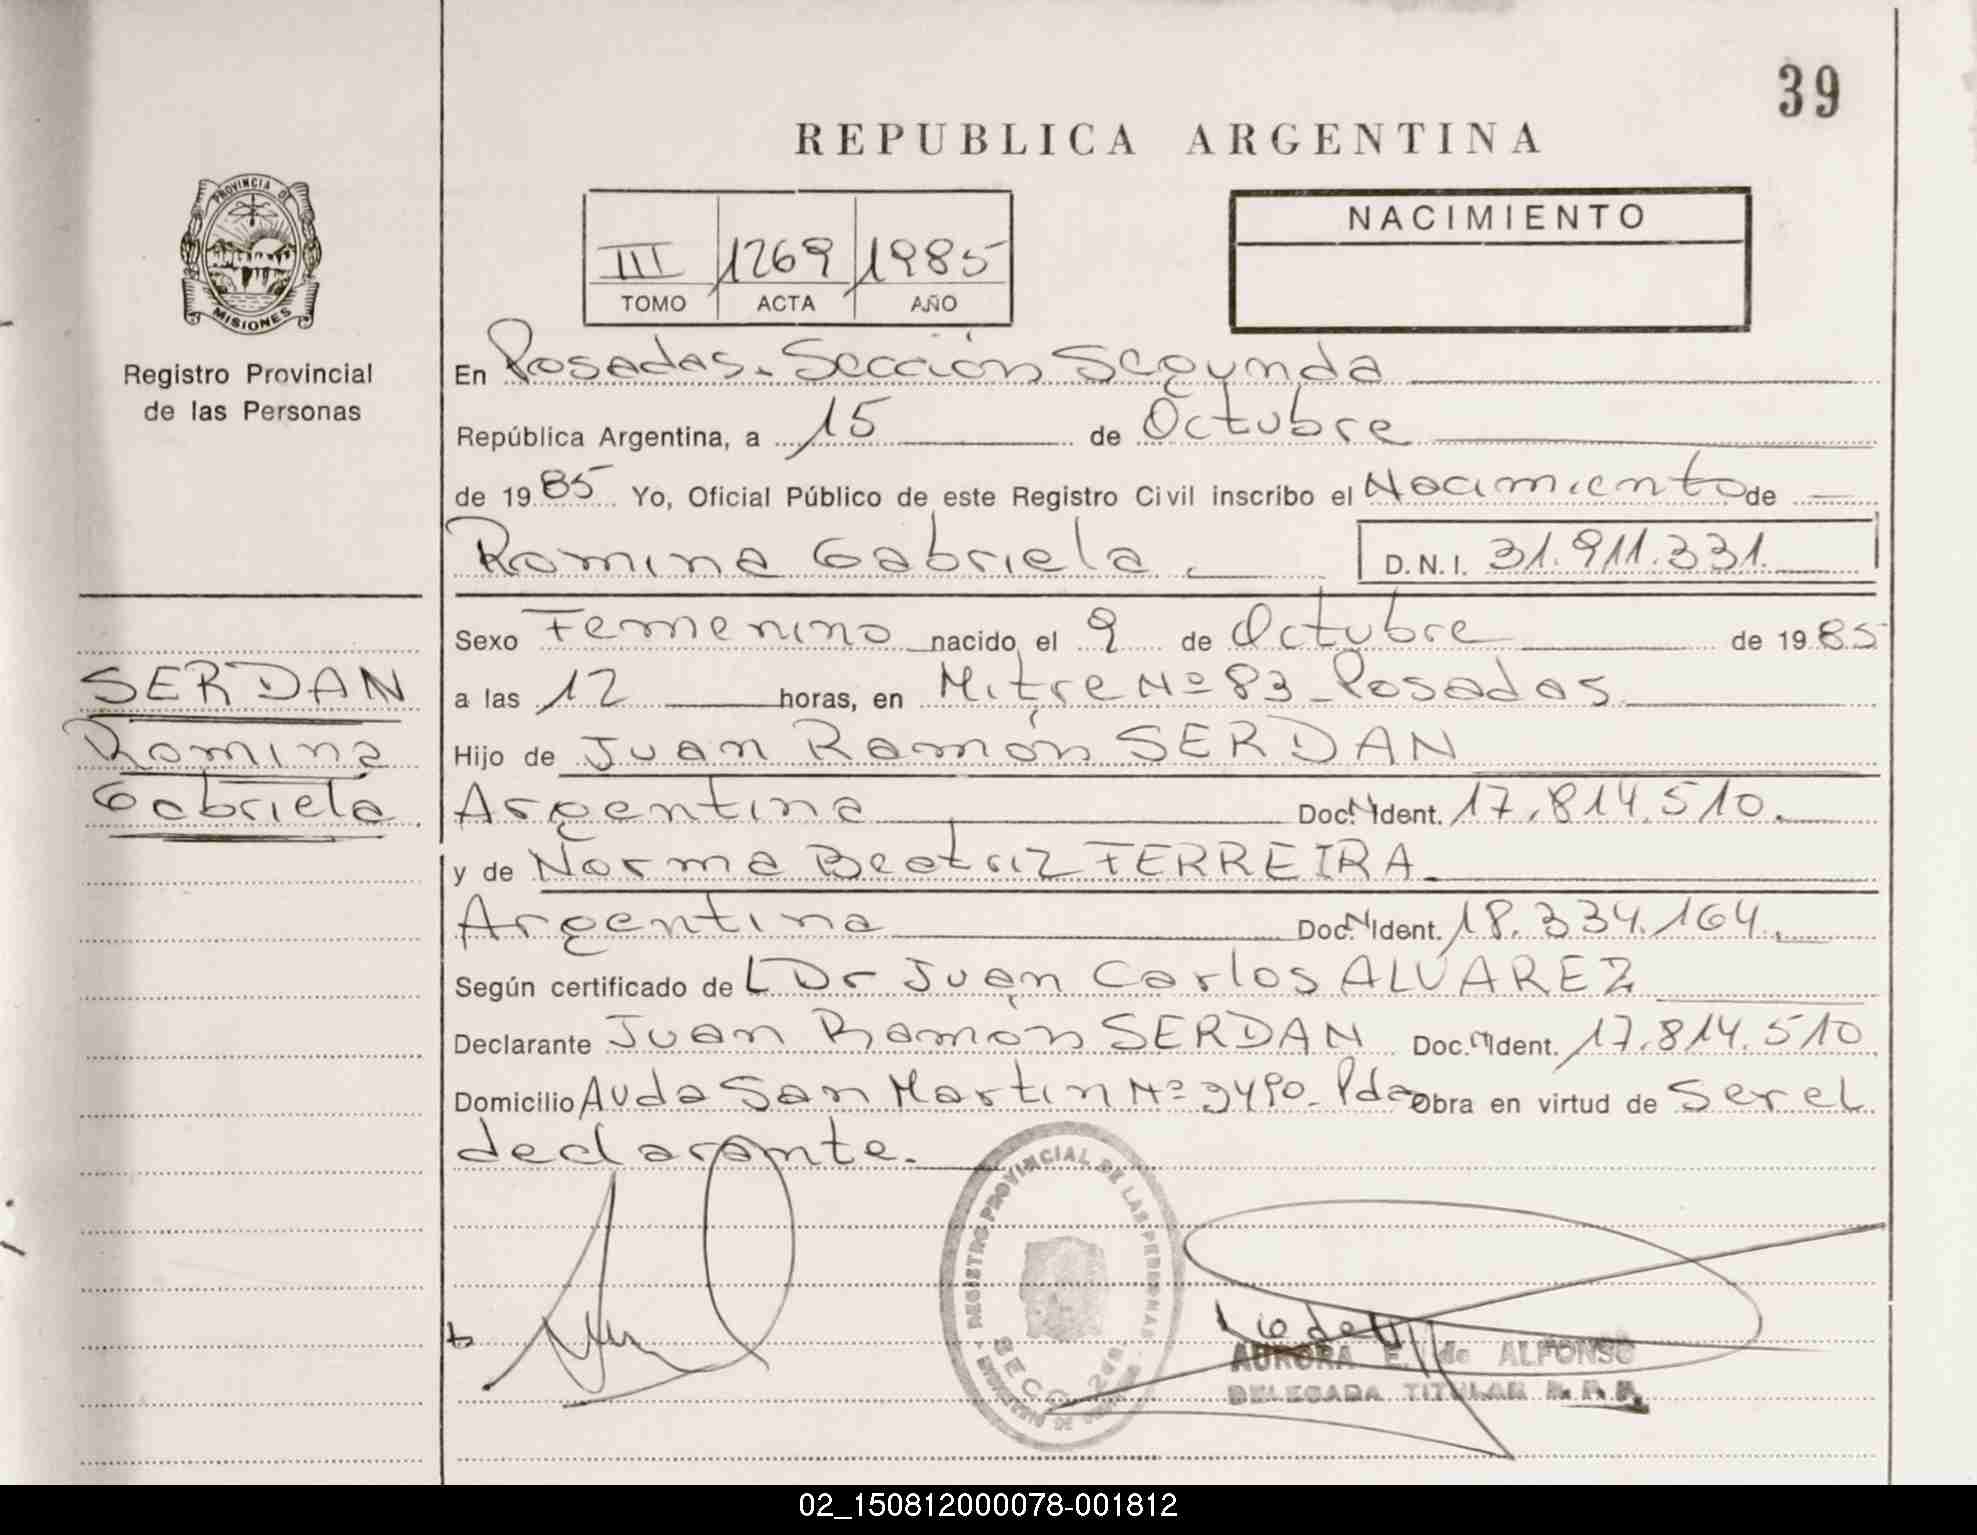 39
REPUBLICA ARGENTINA
PROVINCIA DE
MISIONES
Registro Provincial
de las Personas
III 1269 1985
TOMO ACTA AÑO
NACIMIENTO
En Posadas. Sección Segunda
República Argentina, a 15 de Octubre
de 1985 Yo, Oficial Público de este Registro Civil inscribo el Nacimiento de
Romina Gabriela D.N.I. 31.911.331.
Sexo Femenino nacido el 9 de Octubre de 1985
SERDAN
Romina
Gabriela
a las 12 horas, en Mitre Nº 83 - Posadas
Hijo de Juan Ramón SERDAN
Argentina Doc. N. Ident. 17.814.510.
y de Norma Beatriz FERREIRA
Argentina Doc. N. Ident. 18.334.164.
Según certificado de L Dr Juan Carlos ALVAREZ
Declarante Juan Ramón SERDAN Doc. N. Ident. 17.814.510
Domicilio Avda San Martin Nº 3490 - Pdas Obra en virtud de ser el
declarante.
REGISTRO PROVINCIAL DE LAS PERSONAS
SECC. 2da
MINISTERIO DE
AURORA E. de ALFONSO
DELEGADA TITULAR R. P. P.
02_150812000078-001812